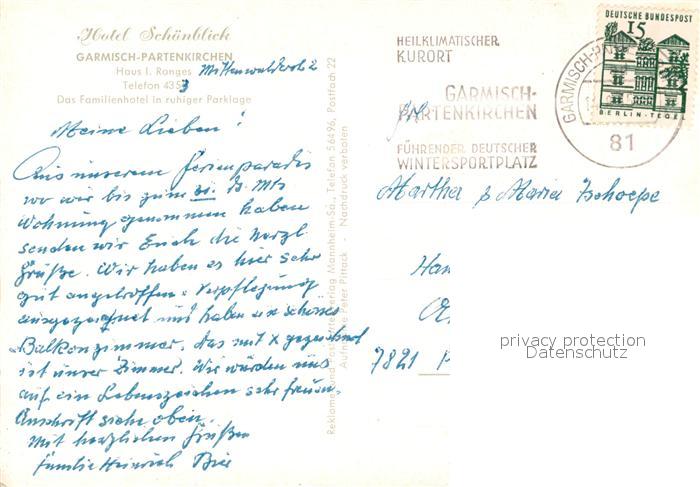 Hotel Schönblick
GARMISCH-PARTENKIRCHEN
Haus I. Ranges Mittenwalderstr 2
Telefon 4353
Das Familienhotel in ruhiger Parklage
Meine Lieben!
Aus unserem Ferienparadis
wo wir bis zum Mts
Wohnung genommen haben
senden wir Euch die herzl.
Grüße. Wir haben es hier sehr
gut angetroffen. Verpflegung
ausgezeichnet und haben ein schönes
Balkonzimmer. Das mit X gezeichnet
ist unser Zimmer. Wir würden uns
auf ein Lebenszeichen sehr freuen.
Anschrift siehe oben.
Mit herzlichen Grüßen
Familie Heinrich Bier
Reklame und Postkarten-Verlag Mannheim-Sd., Telefon 56496, Postfach 22
Aufnahme Peter Pittack - Nachdruck verboten
HEILKLIMATISCHER
KURORT
GARMISCH-
PARTENKIRCHEN
FÜHRENDER DEUTSCHER
WINTERSPORTPLATZ
GARMISCH-PA
81
DEUTSCHE BUNDESPOST
15
BERLIN-TEGEL
Martha & Maria Zschoepe
7821
privacy protection
Datenschutz